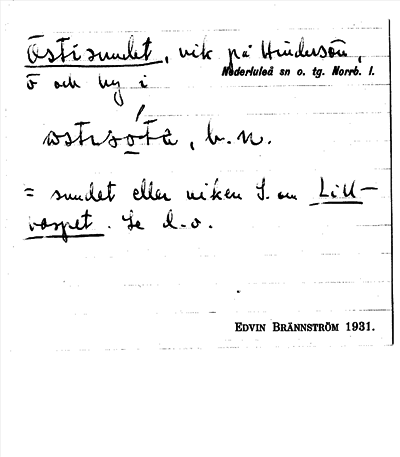 Östisundet, vik på Hindersön,
ö och by i Nederluleå sn o. tg. Norrb. l.
östisǫ́ta, b. n.
= sundet eller viken S. om Lill-
. Se d. o.
EDVIN BRÄNNSTRÖM 1931.